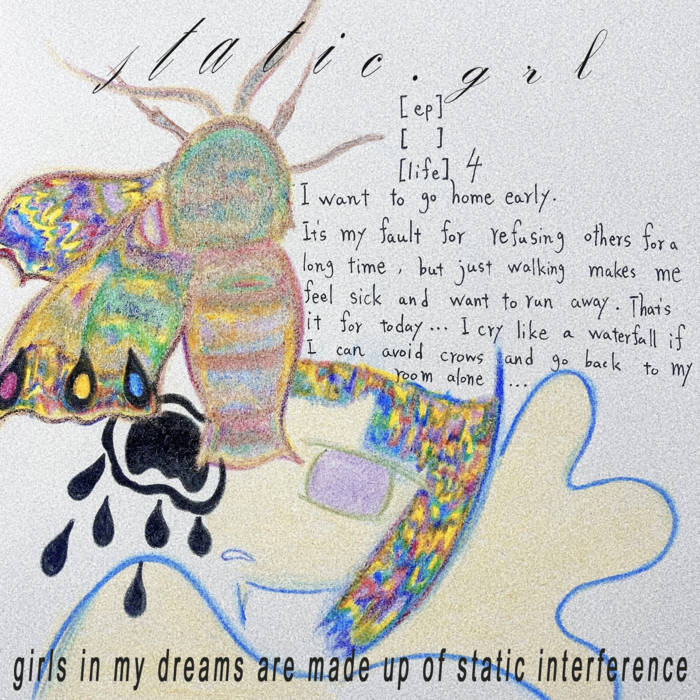 static.grl
[ep]
[ ]
[life] 4
I want to go home early.
It's my fault for refusing others for a
long time, but just walking makes me
feel sick and want to run away. That's
it for today... I cry like a waterfall if
I can avoid crows and go back to my
room alone ...
girls in my dreams are made up of static interference